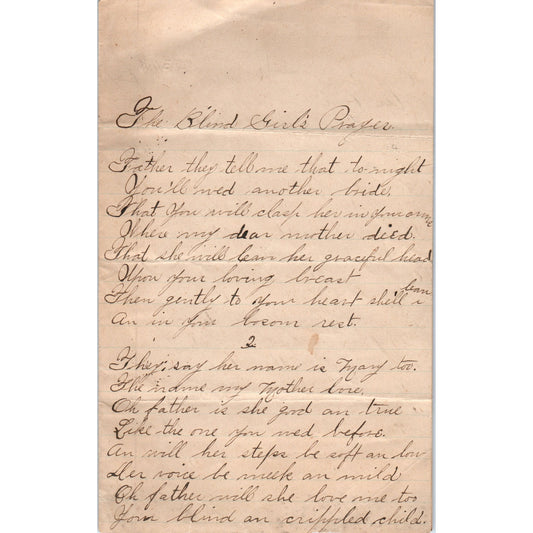 The Blind Girl's Prayer
Father they tell me that to-night
You'll wed another bride,
That you will clasp her in your arms
Where my dear mother died.
That she will lean her graceful head
Upon your loving breast
Then gently to your heart she'll lean
An in your bosom rest.
2
They say her name is Mary too.
The name my Mother bore,
Oh father is she good an true
Like the one you wed before.
An will her steps be soft an low
Her voice be meek an mild
Oh father will she love me too
Your blind an crippled child.